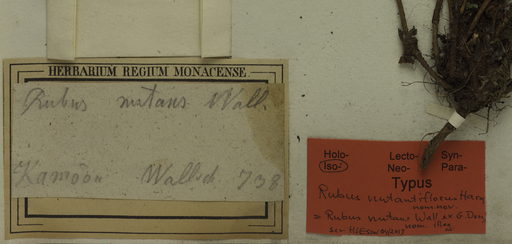 HERBARIUM REGIUM MONACENSE.
Rubus nutans Wall.
Kamôon Wallich. 738
Holo- Lecto- Syn-
Iso- Neo- Para-
Typus
Rubus nutantiflorus Hara
nom. nov.
= Rubus nutans Wall. ex G. Don
nom. illeg.